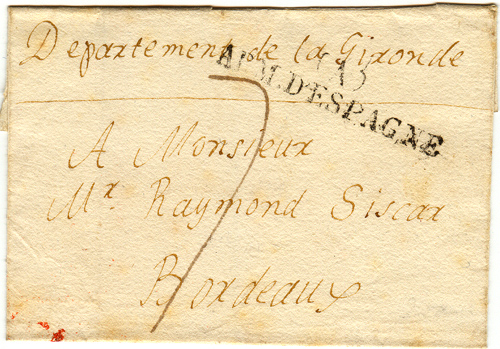 Departement de la Gironde
ARM.D'ESPAGNE
A Monsieur
Mr. Raymond Siscar
Bordeaux
7